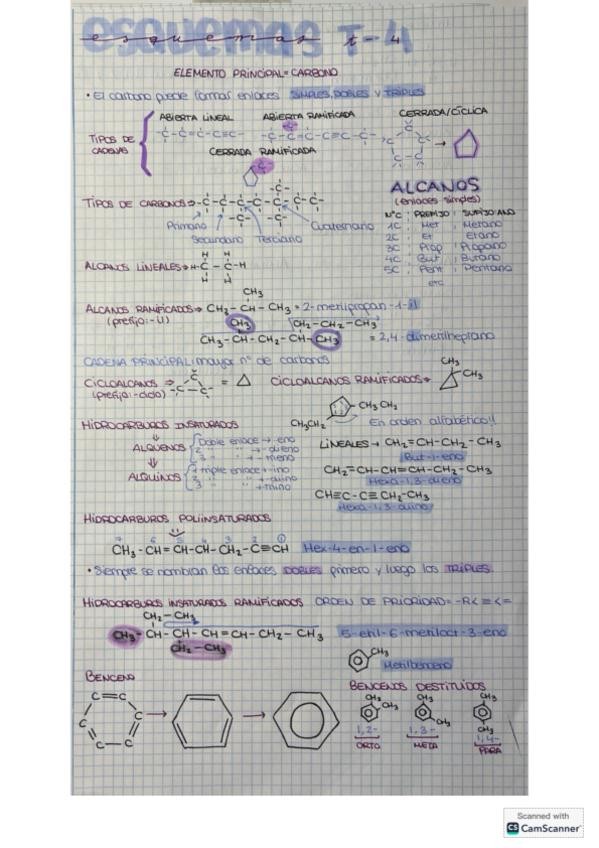 esquemas T-4
ELEMENTO PRINCIPAL= CARBONO
• El carbono puede formar enlaces SIMPLES, DOBLES Y TRIPLES
TIPOS DE CADENAS
ABIERTA LINEAL
ABIERTA RAMIFICADA
CERRADA/CÍCLICA
-C-C=C-C≡C-
CERRADA RAMIFICADA
TIPOS DE CARBONOS→
Primario
Secundario
Terciario
Cuaternario
ALCANOS
(enlaces simples)
NºC PREFIJO SUFIJO: ANO
1C Met Metano
2C Et Etano
3C Prop Propano
4C But Butano
5C Pent Pentano
etc
ALCANOS LINEALES→
H H
H-C-C-H
H H
ALCANOS RAMIFICADOS→
(prefijo:-il)
CH3
CH2-CH-CH3 = 2-metilpropan-1-il
CH3 CH2-CH2-CH3
CH3-CH-CH2-CH-CH3 = 2,4-dimetilheptano
CADENA PRINCIPAL: mayor nº de carbonos
CICLOALCANOS ⇒
(prefijo:-ciclo)
CICLOALCANOS RAMIFICADOS→
CH3
CH3
CH3CH2
CH3CH2
En orden alfabético!!
HIDROCARBUROS INSATURADOS
ALQUENOS
Doble enlace → -eno
2 " " → -dieno
3 " " → -trieno
ALQUINOS
1 triple enlace → -ino
2 " " → -diino
3 " " → -triino
LINEALES→ CH2=CH-CH2-CH3
But-1-eno
CH2=CH-CH=CH-CH2-CH3
Hexa-1,3-dieno
CH≡C-C≡CH2-CH3
Hexa-1,3-diino
HIDROCARBUROS POLIINSATURADOS
7 6 5 4 3 2 1
CH3-CH=CH-CH-CH2-C≡CH Hex-4-en-1-eno
• Siempre se nombran los enlaces DOBLES primero y luego los TRIPLES.
HIDROCARBUROS INSATURADOS RAMIFICADOS ORDEN DE PRIORIDAD= -R<≡<=
CH2-CH3
CH3-CH-CH-CH=CH-CH2-CH3 5-etil-6-metiloct-3-eno
CH2-CH3
CH3
Metilbenceno
BENCENO
C=C
C C
C-C
BENCENOS DESTITUÍDOS
CH3 CH3
1,2-
ORTO
CH3 CH3
1,3-
META
CH3
CH3
1,4-
PARA
Scanned with
CS CamScanner